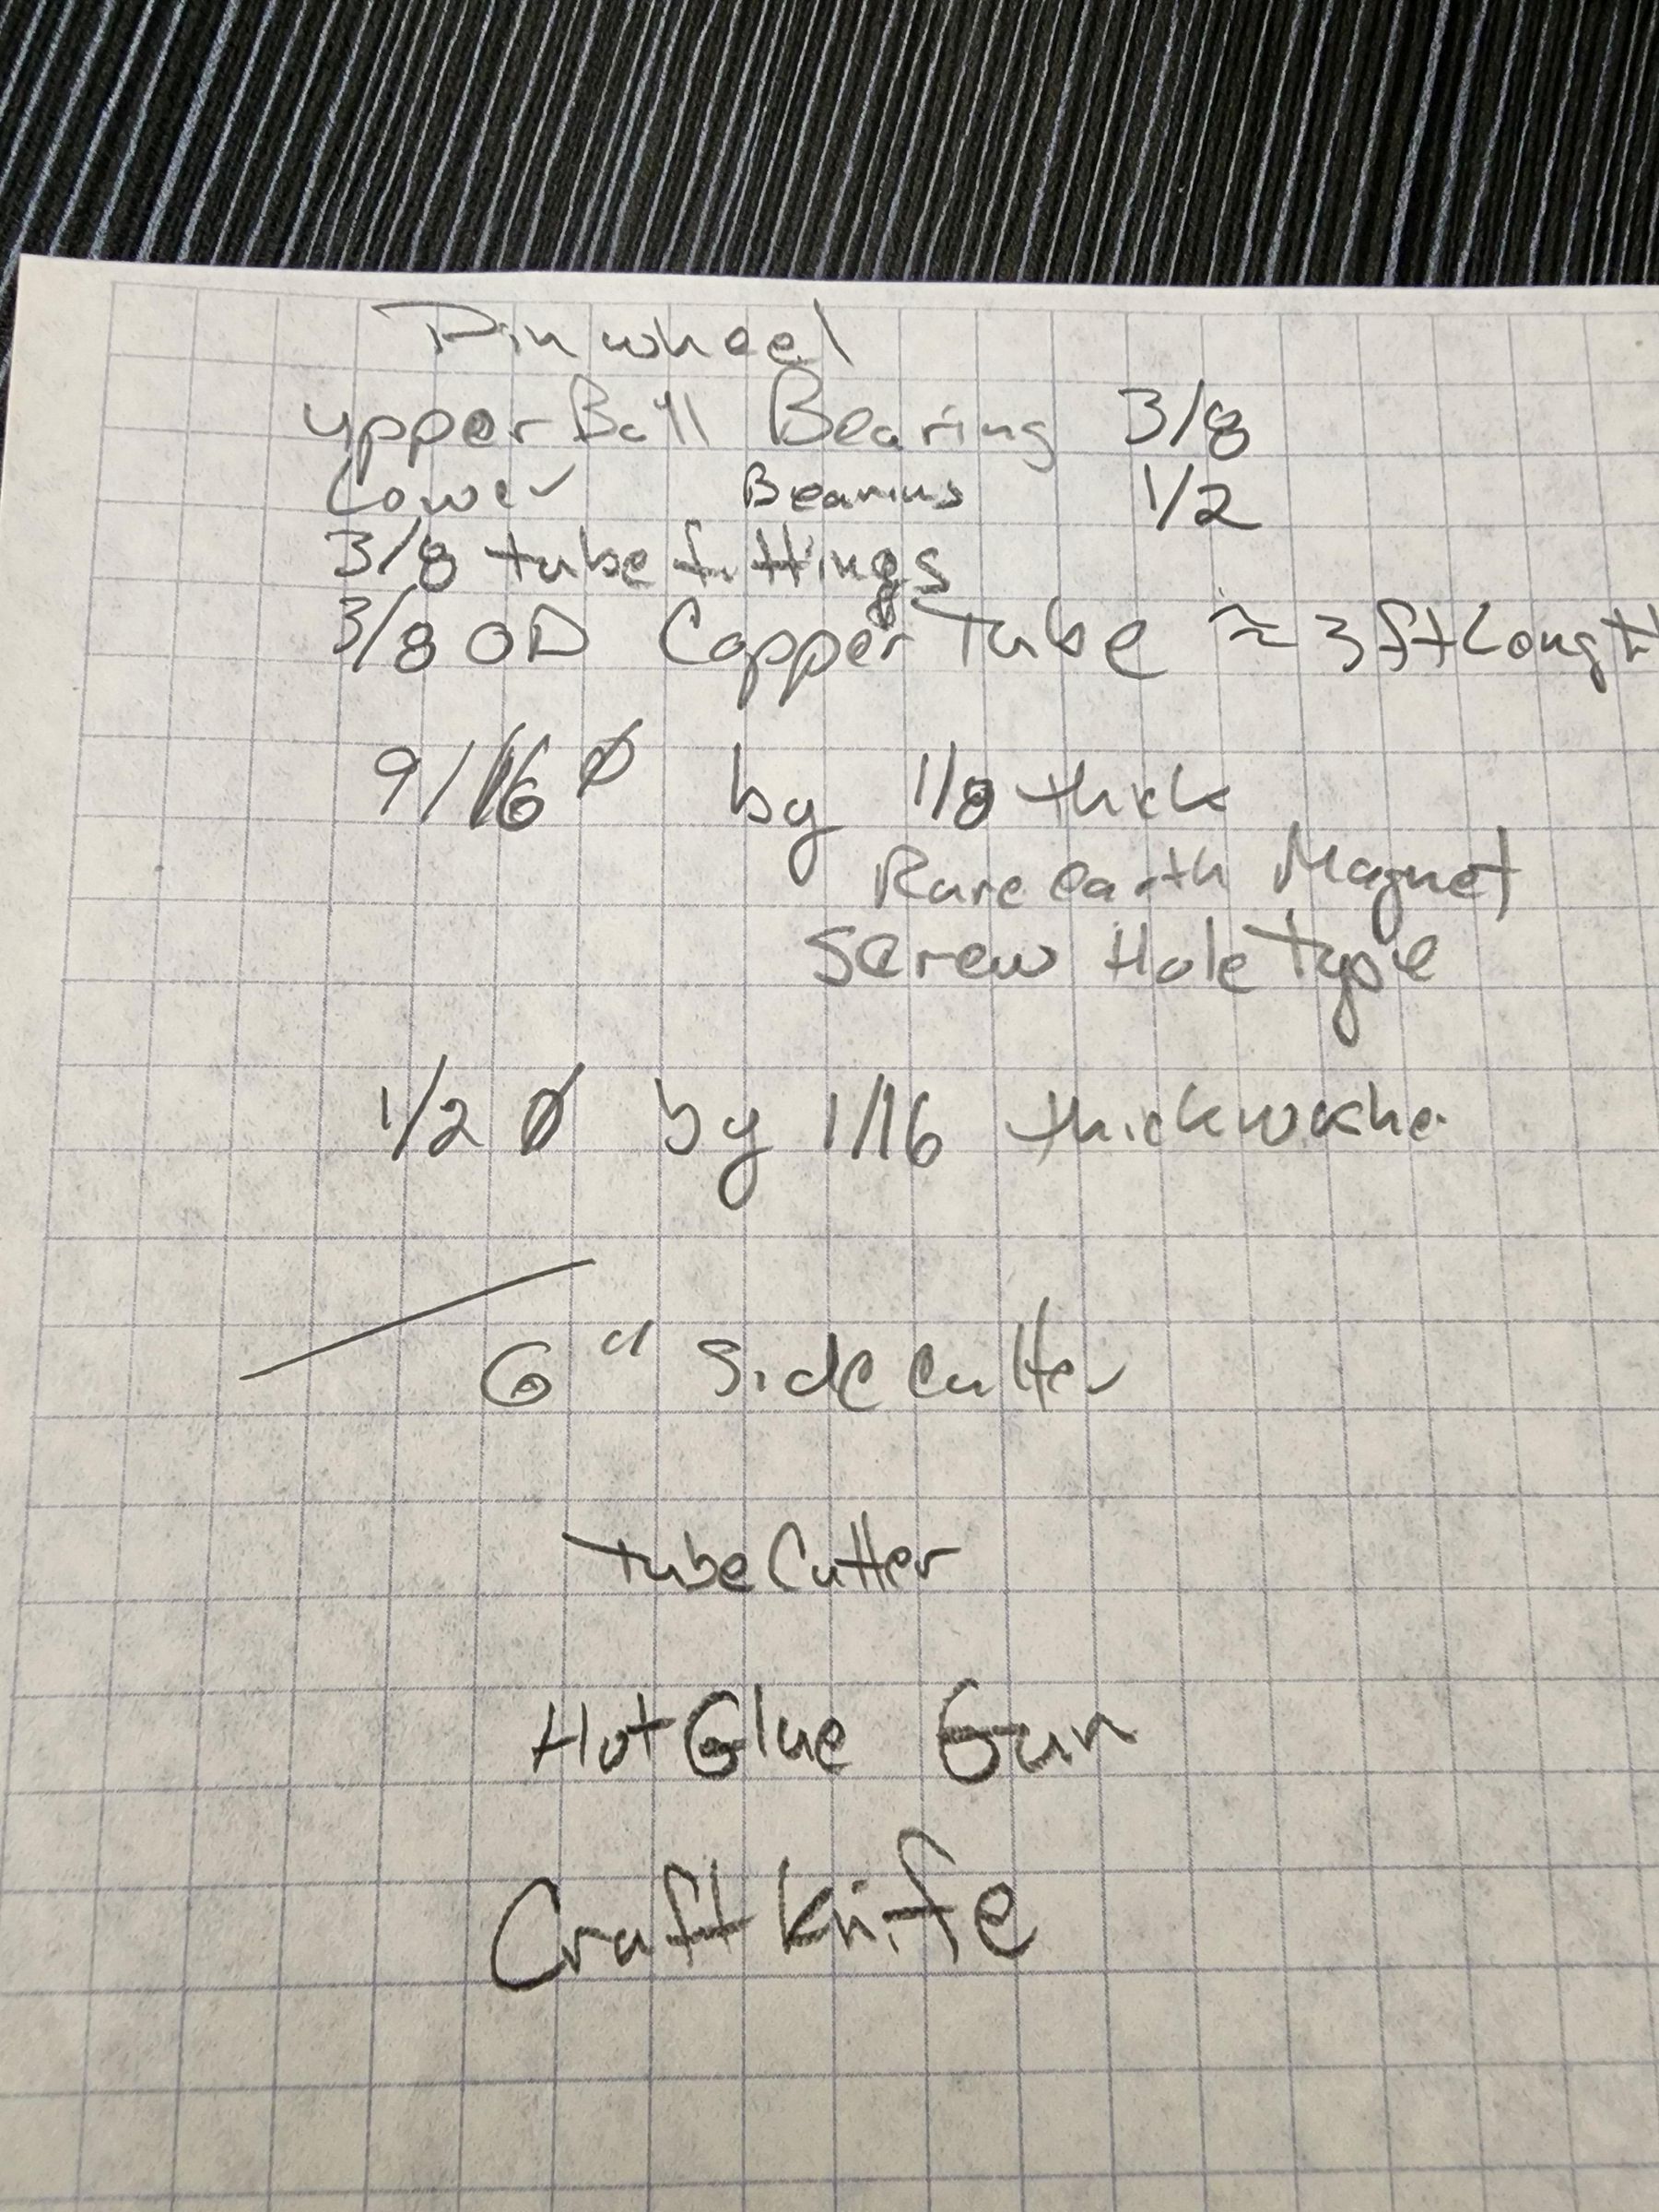 Pinwheel
upper Ball Bearing 3/8
Lower Bearing 1/2
3/8 tube fittings
3/8 OD Copper Tube ≈ 3 ft Long
9/16 ø by 1/8 thick
Rare earth Magnet
Screw Hole Type
1/2 ø by 1/16 thick washer
6" Side cutter
Tube Cutter
Hot Glue Gun
Craft knife